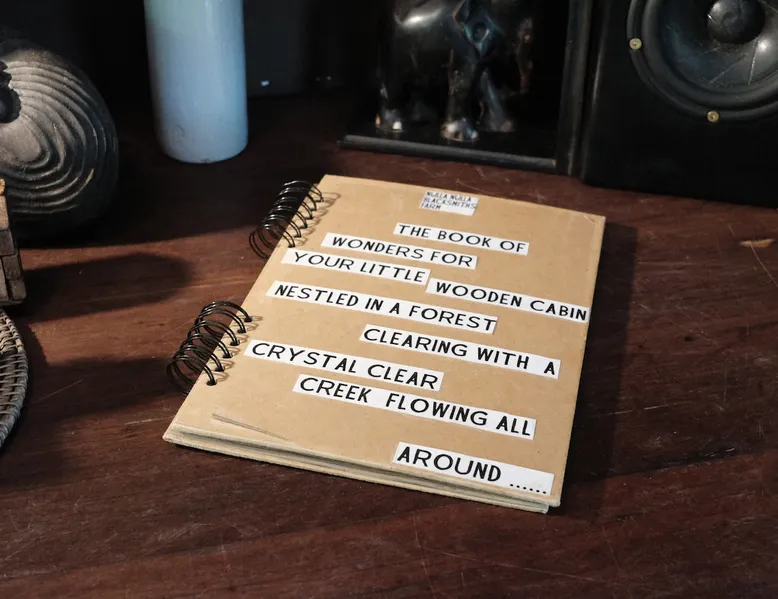 NULLA NULLA
BLACKSMITHS
FARM
THE BOOK OF
WONDERS FOR
YOUR LITTLE
WOODEN CABIN
NESTLED IN A FOREST
CLEARING WITH A
CRYSTAL CLEAR
CREEK FLOWING ALL
AROUND ......